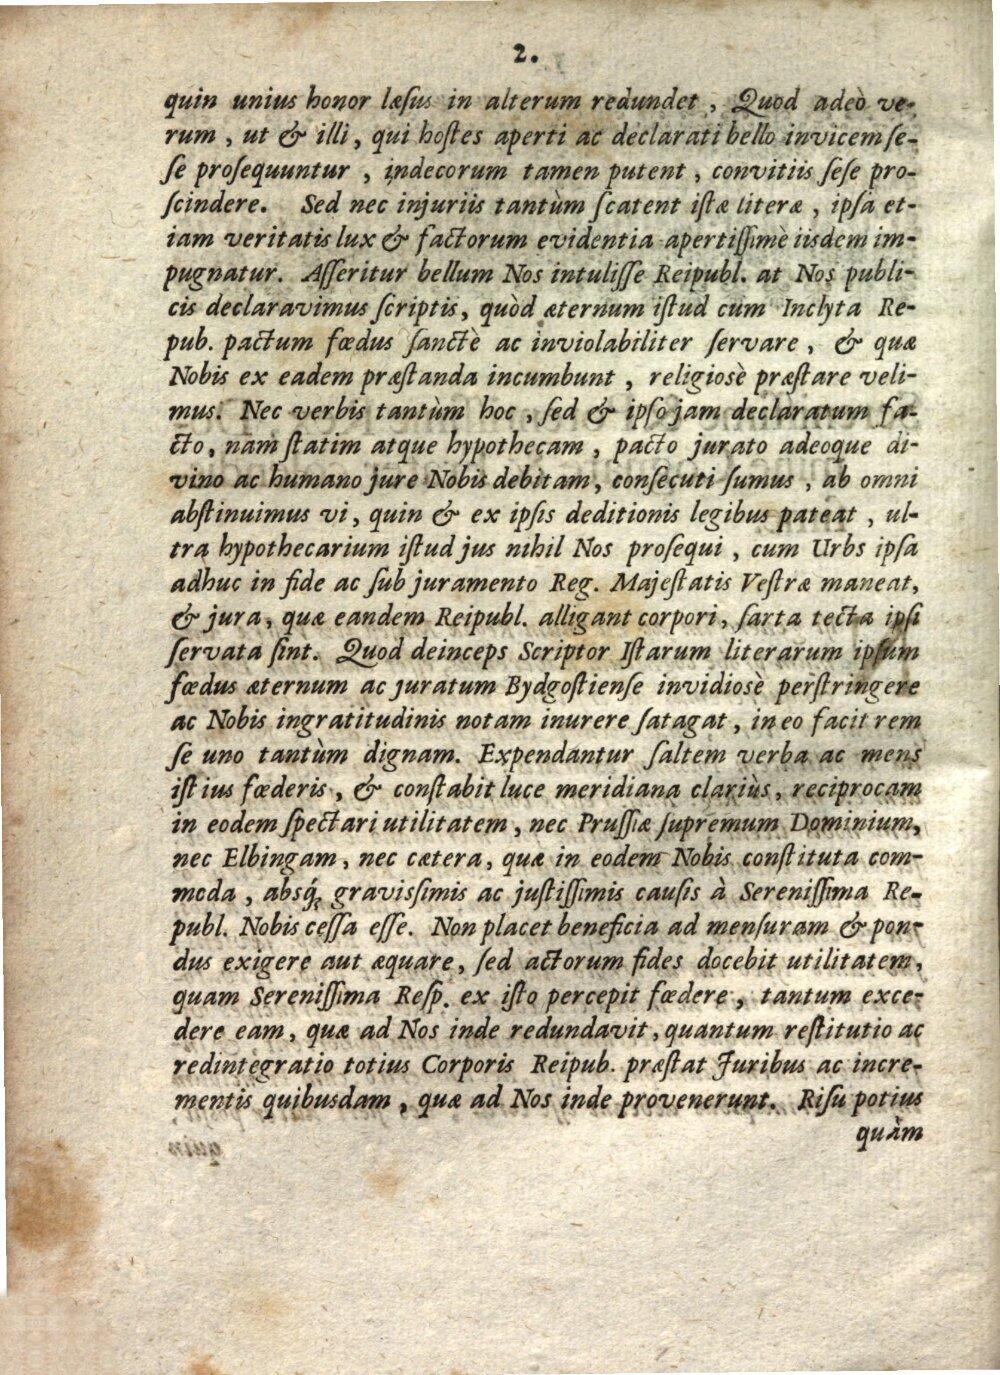 2.
quin unius honor læſus in alterum redundet, Quod adeò ve-
rum, ut & illi, qui hoſtes aperti ac declarati bello invicem ſe-
ſe proſequuntur, indecorum tamen putent, convitiis ſeſe pro-
ſcindere. Sed nec injuriis tantùm ſcatent iſtæ literæ, ipſa et-
iam veritatis lux & factorum evidentia apertiſſimè iisdem im-
pugnatur. Aſſeritur bellum Nos intuliſſe Reipubl. at Nos publi-
cis declaravimus ſcriptis, quòd æternum iſtud cum Inclyta Re-
pub. pactum fœdus ſanctè ac inviolabiliter ſervare, & quæ
Nobis ex eadem præſtanda incumbunt, religiosè præſtare veli-
mus. Nec verbis tantùm hoc, ſed & ipſo jam declaratum fa-
cto, nam ſtatim atque hypothecam, pacto jurato adeoque di-
vino ac humano jure Nobis debitam, conſecuti ſumus, ab omni
abſtinuimus vi, quin & ex ipſis deditionis legibus pateat, ul-
tra hypothecarium iſtud jus nihil Nos proſequi, cum Urbs ipſa
adhuc in fide ac ſub juramento Reg. Majeſtatis Veſtræ maneat,
& jura, quæ eandem Reipubl. alligant corpori, ſarta tecta ipſi
ſervata ſint. Quod deinceps Scriptor Iſtarum literarum ipſum
fœdus æternum ac juratum Bydgoſtienſe invidiosè perſtringere
ac Nobis ingratitudinis notam inurere ſatagat, in eo facit rem
ſe uno tantùm dignam. Expendantur ſaltem verba ac mens
iſtius fœderis, & conſtabit luce meridiana clariùs, reciprocam
in eodem ſpectari utilitatem, nec Pruſſiæ ſupremum Dominium,
nec Elbingam, nec cætera, quæ in eodem Nobis conſtituta com-
moda, absq́; graviſsimis ac juſtiſſimis cauſis à Sereniſſima Re-
publ. Nobis ceſſa eſſe. Non placet beneficia ad menſuram & pon-
dus exigere aut æquare, ſed actorum fides docebit utilitatem,
quam Sereniſſima Reſp. ex iſto percepit fœdere, tantum exce-
dere eam, quæ ad Nos inde redundavit, quantum reſtitutio ac
redintegratio totius Corporis Reipub. præſtat Juribus ac incre-
mentis quibusdam, quæ ad Nos inde provenerunt. Riſu potius
quàm